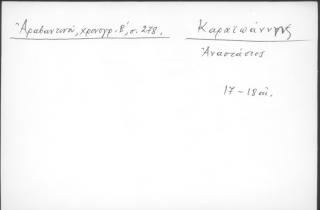 Ἀραβαντινοῦ, χρονογρ. Β', σ. 278.
Καρατζιάννης
Ἀναστάσιος
17-18 αἰ.